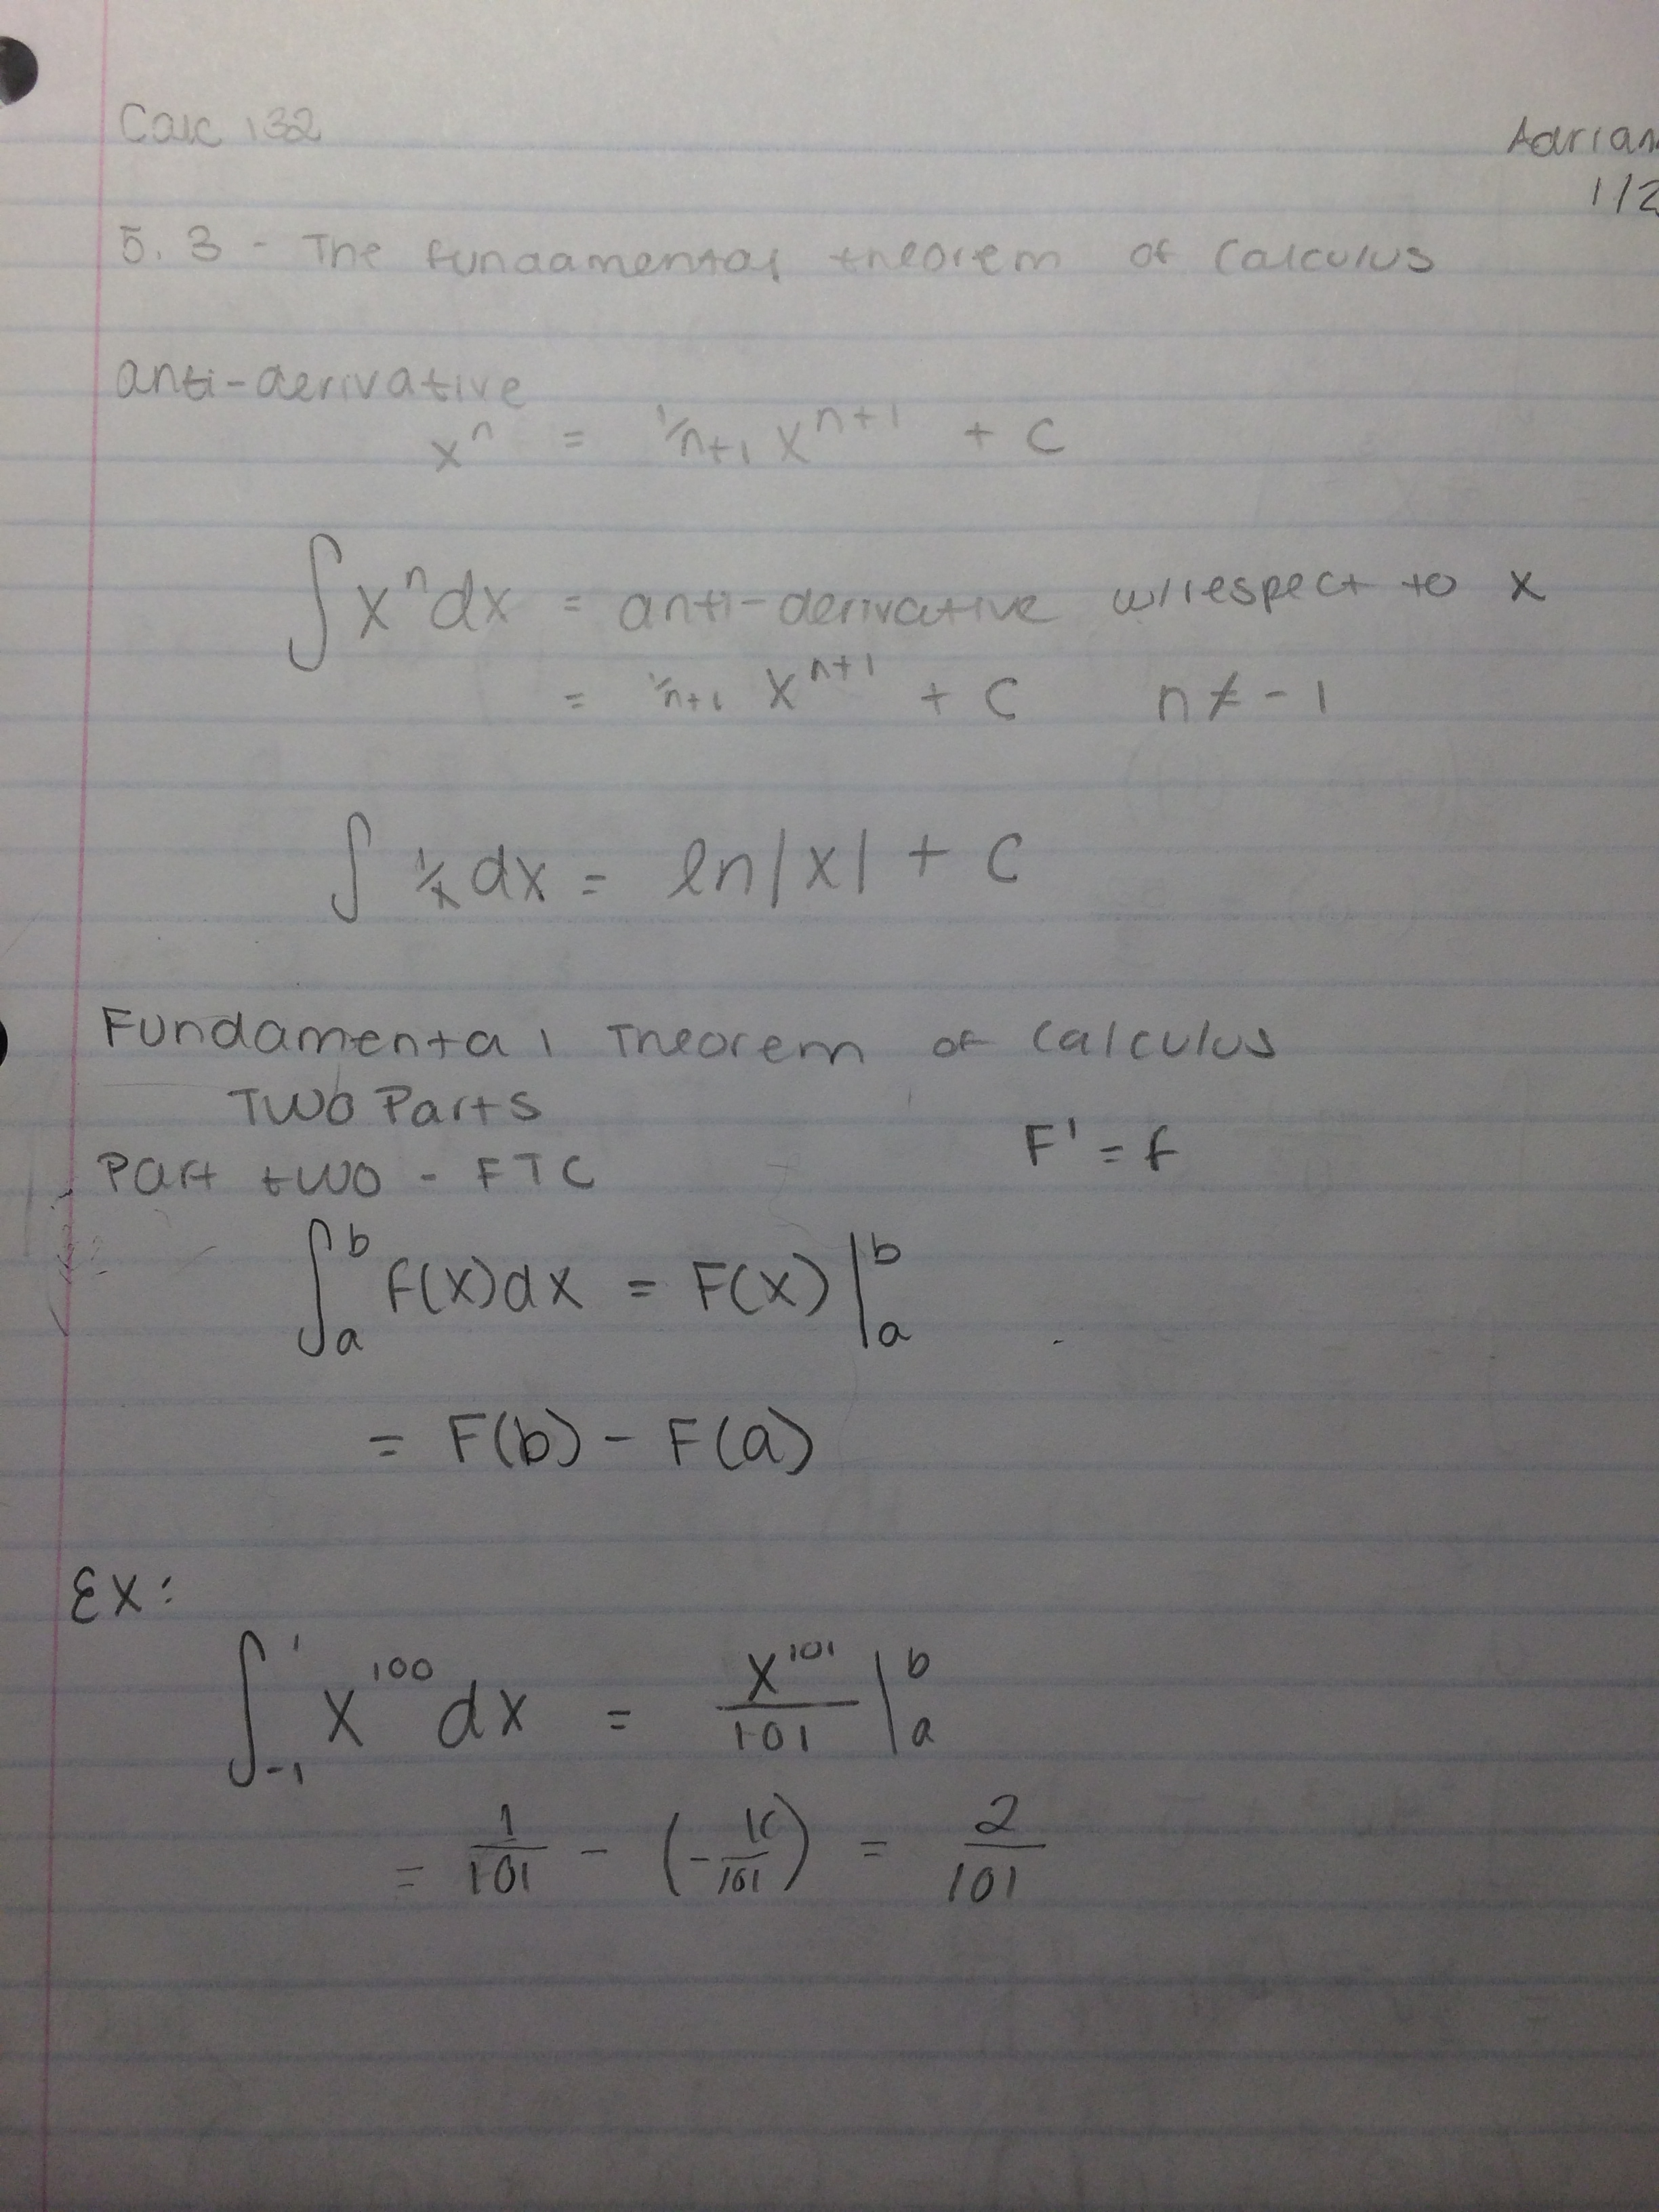 Calc 132
Adrian
1/2
5.3 - The fundamental theorem of Calculus
anti-derivative
xⁿ = 1/n+1 xⁿ⁺¹ + C
∫xⁿdx = anti-derivative w/respect to x
= 1/n+1 xⁿ⁺¹ + C n ≠ -1
∫ 1/x dx = ln|x| + C
Fundamental Theorem of Calculus
Two Parts
F' = f
Part two - FTC
∫ₐᵇ f(x)dx = F(x)|ₐᵇ
= F(b) - F(a)
Ex:
∫₋₁¹ x¹⁰⁰ dx = x¹⁰¹/101 |ₐᵇ
= 1/101 - (-1/101) = 2/101